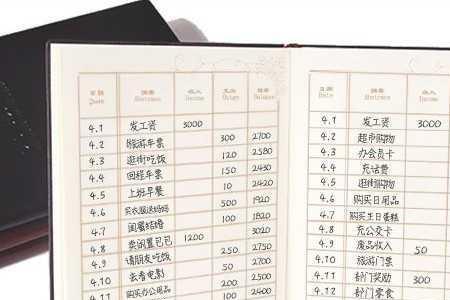 日期 摘要 收入 支出 结存
Date Abstract Income Outgo Balance
4.1 发工资 3000
4.2 旅游车票 300 2700
4.3 逛街吃饭 120 2580
4.4 回程车票 150 2430
4.5 上班早餐 10 2420
4.6 买衣服送妈妈 500 1920
4.7 闺蜜结婚 100 1820
4.8 卖闲置包包 1200 3020
4.9 请朋友吃饭 250 2750
4.10 去看电影 50 2700
4.11 购买办公用品 200 2500
100 2400
日期 摘要 收入
Date Abstract Income
4.1 发工资 3000
4.2 超市购物
4.3 办会员卡
4.4 充话费
4.5 逛街购物
4.6 购买日用品
4.7 购买生日蛋糕
4.8 充公交卡
4.9 废品收入 50
4.10 旅游门票
4.11 部门奖励 300
4.12 部门零食